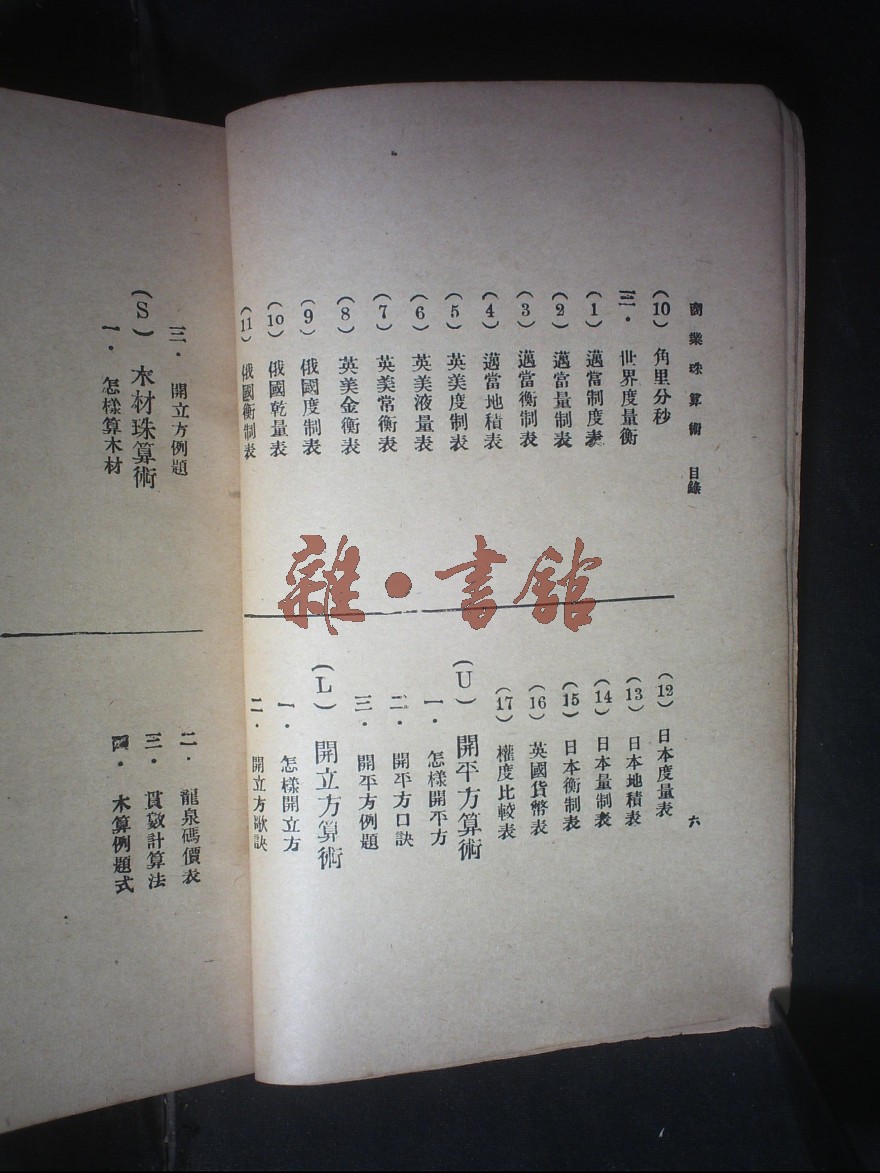 商業珠算術 目錄
六
(10) 角里分秒
三・世界度量衡
(1) 邁當制度表
(2) 邁當量制表
(3) 邁當衡制表
(4) 邁當地積表
(5) 英美度制表
(6) 英美液量表
(7) 英美常衡表
(8) 英美金衡表
(9) 俄國度制表
(10) 俄國乾量表
(11) 俄國衡制表
(12) 日本度量表
(13) 日本地積表
(14) 日本量制表
(15) 日本衡制表
(16) 英國貨幣表
(17) 權度比較表
(U) 開平方算術
一・怎樣開平方
二・開平方口訣
三・開平方例題
(L) 開立方算術
一・怎樣開立方
二・開立方歌訣
三・開立方例題
(S) 木材珠算術
一・怎樣算木材
二・龍泉碼價表
三・貫數計算法
四・木算例題式
雜・書館